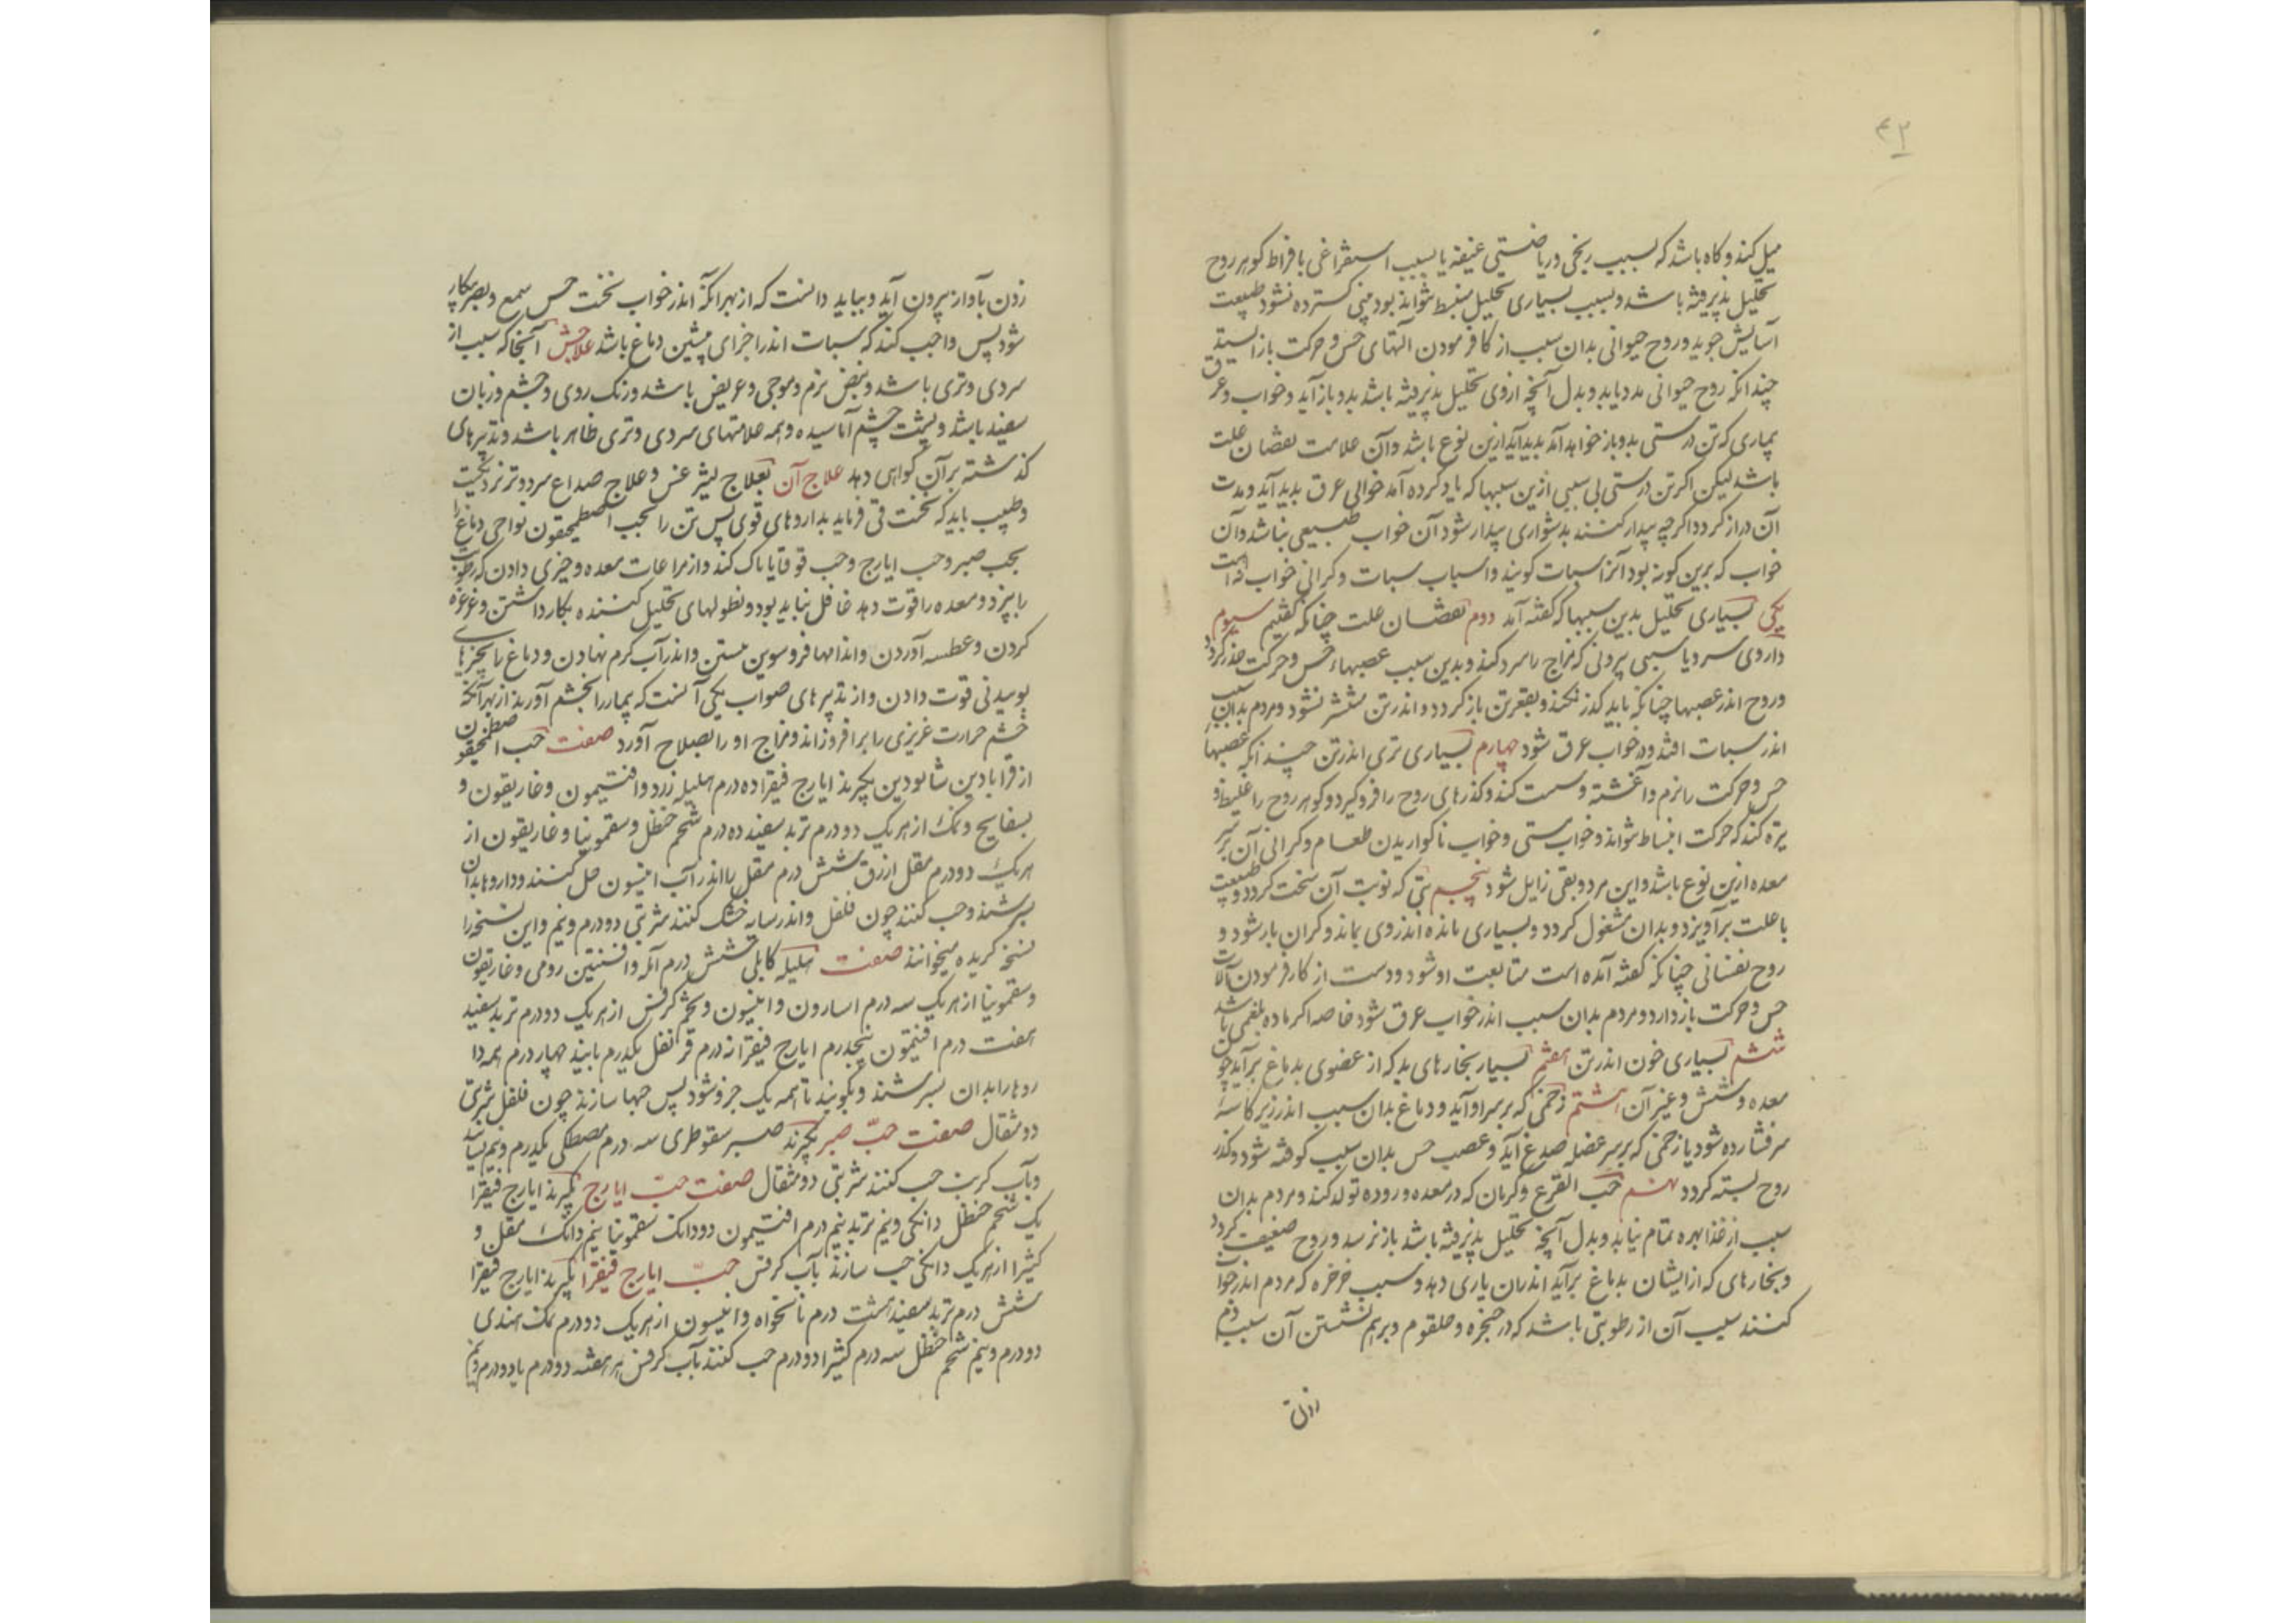 ۴۳
میل کند و کاه باشد که بسبب رنجی و ریاضتی عنیفه یا بسبب استفراغی بافراط کوهر روح
تحلیل پذیرفته باشد و بسبب بسیاری تحلیل منبسط نتواند بود یعنی کسترده نشود طبیعت
آسایش جوید و روح حیوانی بدان سبب از کار فرمودن آلتهای حس و حرکت باز ایستد
چندانکه روح حیوانی مدد یابد و بدل آنچه از وی تحلیل پذیرفته باشد بدو باز آید و خواب و عرق
بیماری که تن درستی بدو باز خواهد آمد بدید آید ازین نوع باشد و آن علامت نقصان علت
باشد لیکن اکر تن درستی بی سببی ازین سببها که یاد کرده آمد خوابی عرق بدید آید و مدت
آن دراز کردد و اکرچه بیدار کنند بدشواری بیدار شود آن خواب طبیعی نباشد و آن
خواب که برین کونه بود آنرا سبات کویند و اسباب سبات و کرانی خواب نه است
یکی بسیاری تحلیل بدین سببها که کفته آمد دوم نقصان علت چنانکه کفتیم سیوم
داروی سرد یا سببی بیرونی که مزاج را سرد کند و بدین سبب عصبهاء حس و حرکت خدر کردد
و روح اندر عصبها چنانکه باید کذر نکند و بقعر تن باز کردد و اندر تن منتشر نشود و مردم بدان سبب
اندر سبات افتد و در خواب عرق شود چهارم بسیاری تری اندر تن چندانکه عصبهاء
حس و حرکت را نرم و آغشته و سست کند و کذرهای روح را فرو کیرد و کوهر روح را غلیظ و
تیره کند که حرکت انبساط نتواند و خواب مستی و خواب ناکواریدن طعام و کرانی آن بر سر
معده ازین نوع باشد و این مرد و بقی زایل شود پنجم تبی که نوبت آن سخت کردد و طبیعت
با علت برآویزد و بدان مشغول کردد و بسیاری مانده اندر وی بماند و کران بار شود و
روح نفسانی چنانکه کفته آمده است متابعت او شود و دست از کار فرمودن آلات
حس و حرکت باز دارد و مردم بدان سبب اندر خواب عرق شود خاصه اکر ماده بلغمی باشد
ششم بسیاری خون اندر تن هفتم بسیار بخارهای بد که از عضوی بدماغ برآید چون
معده و شش و غیر آن هشتم زخمی که بر سر او آید و دماغ بدان سبب اندر زیر کاسه
سر فشارده شود یا زخمی که بر سر عضله صدغ آید و عصب حس بدان سبب کوفته شود و کذر
روح بسته کردد نهم حب القرع و کرمان که در معده و روده تولد کند و مردم بدان
سبب از غذا بهره تمام نیابد و بدل آنچه تحلیل پذیرفته باشد باز نرسد و روح ضعیف کردد
و بخارهای که از ایشان بدماغ برآید اندران یاری دهد و سبب خرخره که مردم اندر خواب
کنند سبب آن از رطوبتی باشد که در حنجره و حلقوم و برهم نشستن آن سبب دم
زدن
زدن بآواز بیرون آید و بباید دانست که از بهر آنکه اندر خواب نخست حس سمع و بصر بیکار
شود پس واجب کند که سبات اندر اجزای پیشین دماغ باشد علاجش آنجا که سبب از
سردی و تری باشد و نبض نرم و موجی و عریض باشد و رنک روی و چشم و زبان
سفید باشد و پشت چشم آماسیده و همه علامتهای سردی و تری ظاهر باشد و تدبیرهای
کذشته بر آن کواهی دهد علاج آن بعلاج لیثرغس و علاج صداع سرد و تر نزدیکست
و طبیب باید که نخست قی فرماید بداروهای قوی پس تن را بحب اصطمخیقون نواحی دماغ را
بحب صبر و حب ایارج و حب قوقایا پاک کند و از مراعات معده و چیزی دادن که رطوبت
را بپزد و معده را قوت دهد غافل نباید بود و نطولهای تحلیل کننده بکار داشتن و غرغره
کردن و عطسه آوردن و اندامها فروسوین بستن و اندر آب کرم نهادن و دماغ را بچیزهای
بوییدنی قوت دادن و از تدبیرهای صواب یکی آنست که بیمار را بخشم آورند از بهر آنکه
خشم حرارت غریزی را برافروزاند و مزاج او را بصلاح آورد صفت حب اصطمخیقون
از قرابادین شابودین بکیرند ایارج فیقرا ده درم هلیله زرد و افتیمون و غاریقون و
بسفایج و نمک از هر یک دو درم تربد سفید ده درم شحم حنظل و سقمونیا و غاریقون از
هر یک دو درم مقل ازرق شش درم مقل را اندر آب انیسون حل کنند و داروها بدان
بسرشند و حب کنند چون فلفل و اندر سایه خشک کنند شربتی دو درم و نیم و این نسخه را
نسخه کریده میخوانند صفت هلیله کابلی شش درم آمله و افسنتین رومی و غاریقون
و سقمونیا از هر یک سه درم اسارون و انیسون و تخم کرفس از هر یک دو درم تربد سفید
هفت درم افتیمون پنجدرم ایارج فیقرا نه درم قرنفل یکدرم بایند چهار درم همه دا
روها را بدان بسرشند و بکوبند تا همه یک جزو شود پس حبها سازند چون فلفل شربتی
دو مثقال صفت حبّ صبر بکیرند صبر سقوطری سه درم مصطکی یکدرم و نیم بسایند
و بآب کرنب حب کنند شربتی دو مثقال صفت حبّ ایارج بکیرند ایارج فیقرا
یک شحم حنظل دانکی و نیم تربد نیم درم افتیمون دو دانک سقمونیا نیم دانک مقل و
کثیرا از هر یک دانکی حب سازند بآب کرفس حبّ ایارج فیقرا بکیرند ایارج فیقرا
شش درم تربد سفید هشت درم نانخواه و انیسون از هر یک دو درم نمک هندی
دو درم و نیم شحم حنظل سه درم کثیرا دو درم حب کنند بآب کرفس هر هفته دو درم یا دو درم و نیم